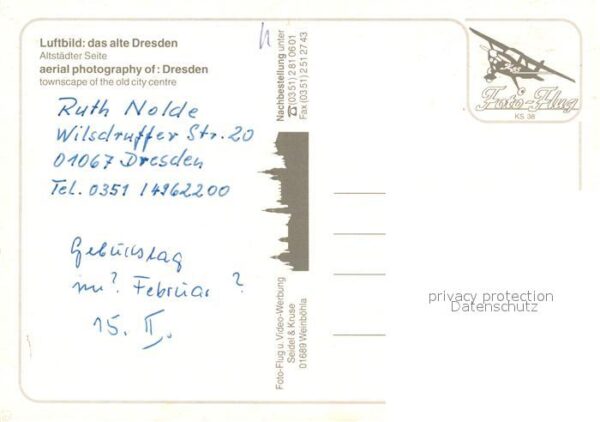 Luftbild: das alte Dresden
Altstädter Seite
aerial photography of: Dresden
townscape of the old city centre
Ruth Nolde
Wilsdruffer Str. 20
01067 Dresden
Tel. 0351 / 4962200
Geburtstag
im? Februar?
15. II.
Nachbestellung unter
☎(0351) 2 81 06 01
Fax (0351) 2 51 27 43
Foto-Flug u. Video-Werbung
Seidel & Kruse
01689 Weinböhla
Foto-Flug
KS 38
privacy protection
Datenschutz